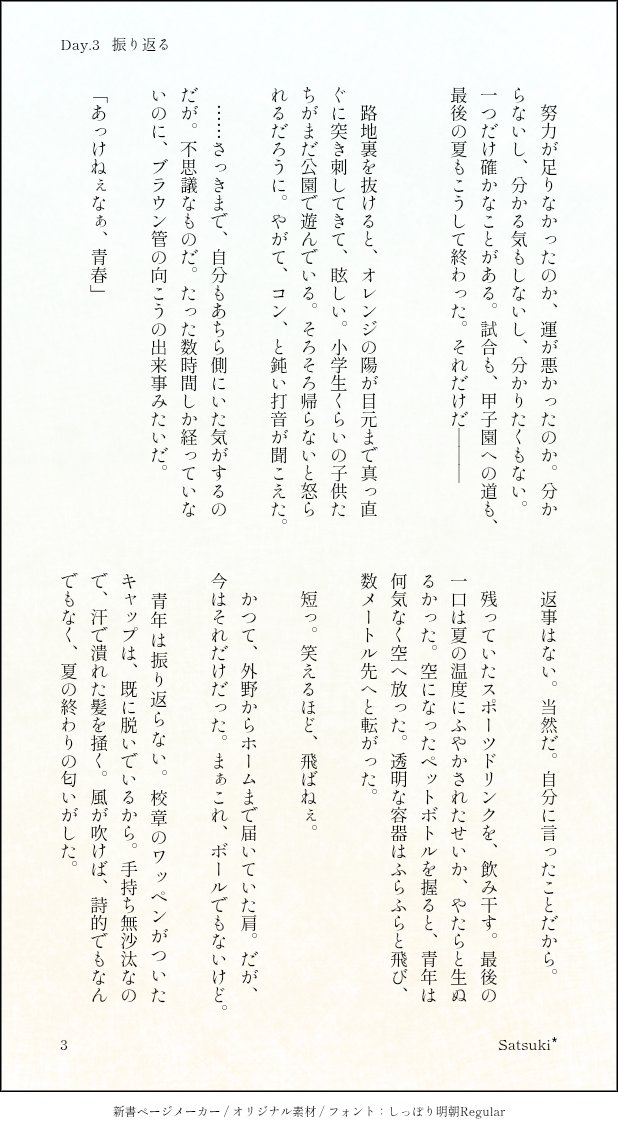 Day.3 振り返る
努力が足りなかったのか、運が悪かったのか。分か
らないし、分かる気もしないし、分かりたくもない。
一つだけ確かなことがある。試合も、甲子園への道も、
最後の夏もこうして終わった。それだけだ――――
路地裏を抜けると、オレンジの陽が目元まで真っ直
ぐに突き刺してきて、眩しい。小学生くらいの子供た
ちがまだ公園で遊んでいる。そろそろ帰らないと怒ら
れるだろうに。やがて、コン、と鈍い打音が聞こえた。
……さっきまで、自分もあちら側にいた気がするの
だが。不思議なものだ。たった数時間しか経っていな
いのに、ブラウン管の向こうの出来事みたいだ。
「あっけねぇなぁ、青春」
返事はない。当然だ。自分に言ったことだから。
残っていたスポーツドリンクを、飲み干す。最後の
一口は夏の温度にふやかされたせいか、やたらと生ぬ
るかった。空になったペットボトルを握ると、青年は
何気なく空へ放った。透明な容器はふらふらと飛び、
数メートル先へと転がった。
短っ。笑えるほど、飛ばねぇ。
かつて、外野からホームまで届いていた肩。だが、
今はそれだけだった。まぁこれ、ボールでもないけど。
青年は振り返らない。校章のワッペンがついた
キャップは、既に脱いでいるから。手持ち無沙汰なの
で、汗で潰れた髪を掻く。風が吹けば、詩的でもなん
でもなく、夏の終わりの匂いがした。
3
Satsuki*
新書ページメーカー / オリジナル素材 / フォント：しっぽり明朝Regular